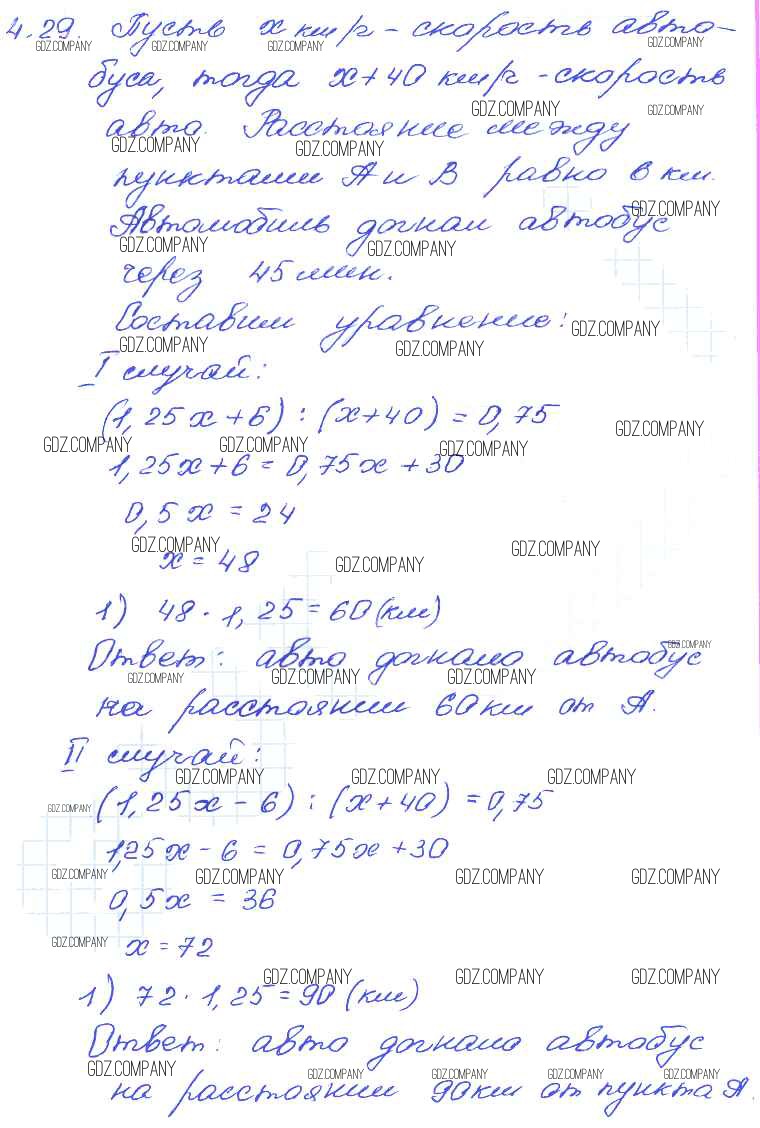 4.29. Пусть x км/ч – скорость авто-
буса, тогда x+40 км/ч – скорость
авто. Расстояние между
пунктами А и В равно 6 км.
Автомобиль догнал автобус
через 45 мин.
Составим уравнение:
I случай:
(1,25x+6) : (x+40) = 0,75
1,25x+6 = 0,75x+30
0,5x = 24
x = 48
1) 48 · 1,25 = 60 (км)
Ответ: авто догнало автобус
на расстоянии 60 км от А.
II случай:
(1,25x – 6) : (x+40) = 0,75
1,25x – 6 = 0,75x+30
0,5x = 36
x = 72
1) 72 · 1,25 = 90 (км)
Ответ: авто догнало автобус
на расстоянии 90 км от пункта А.
GDZ.COMPANY